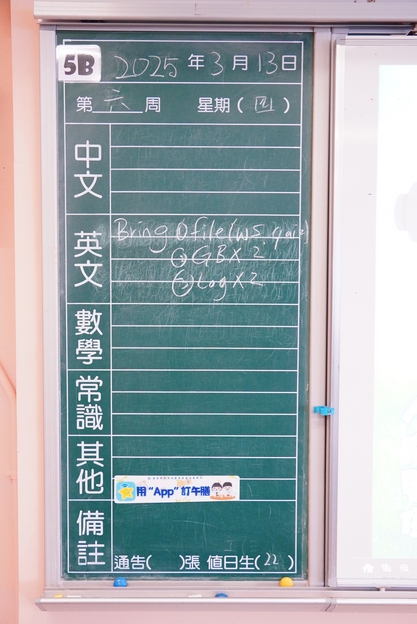 5B 2025年3月13日
第六周 星期(四)
中文
英文
Bring ①file(ws, quiz)
②GBX2
③LogX2
數學
常識
其他
用“App”訂午膳
備註
通告( )張 值日生(22)